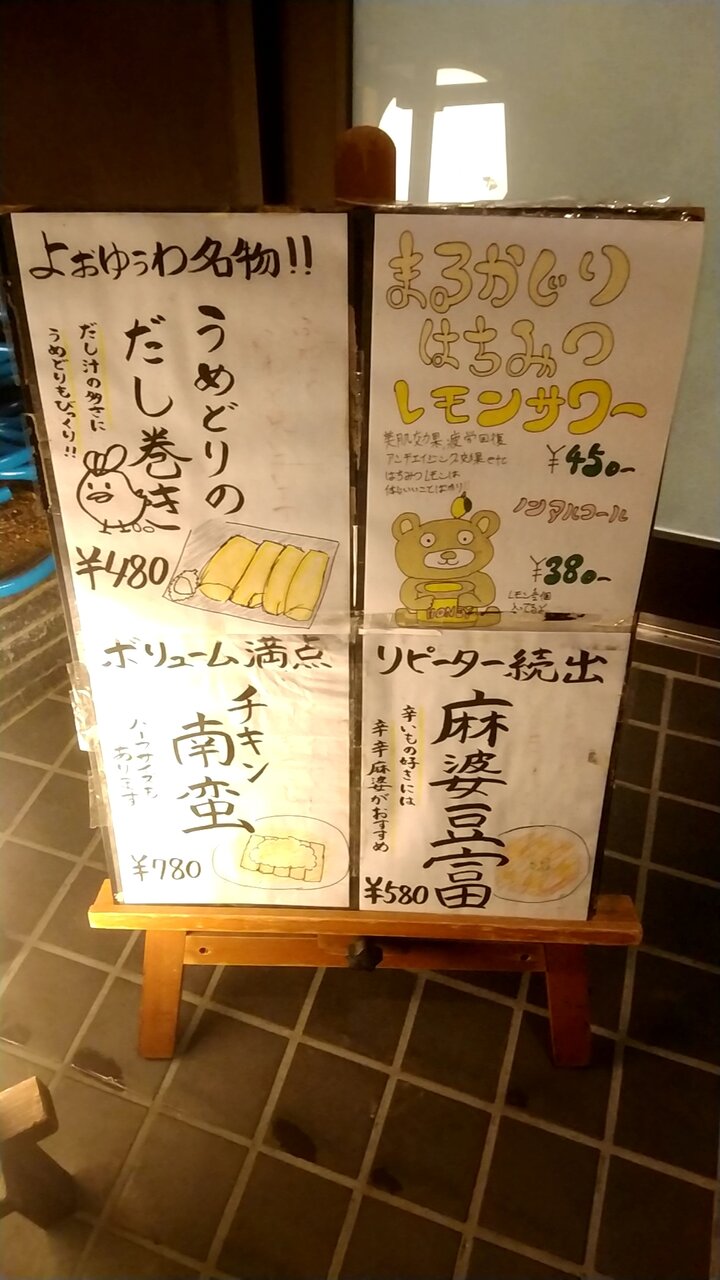 よぉゆぅわ名物!!
うめどりの
だし巻き
だし汁の多さに
うめどりもびっくり!!
¥480
まるかじり
はちみつ
レモンサワー
美肌効果、疲労回復
アンチエイジング効果 etc
はちみつレモンは
体にいいことばかり!!
¥450-
ノンアルコール
¥380-
レモン壱個
入ってるよ
HONEY
ボリューム満点
チキン
南蛮
ハーフサイズも
あります
¥780
リピーター続出
麻婆豆富
辛いもの好きには
辛辛麻婆がおすすめ
¥580